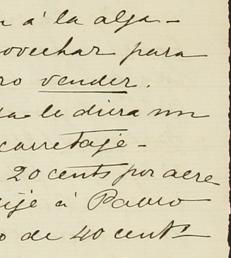 á la alza-
ovechar para
ro vender.
le diera un
carretaje-
20 cents por acre
ije á Pablo
o de 40 cents